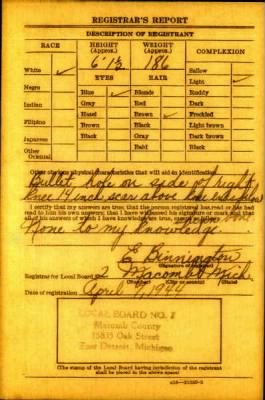 REGISTRAR'S REPORT
DESCRIPTION OF REGISTRANT
RACE HEIGHT (Approx.) WEIGHT (Approx.) COMPLEXION
6' 1½ 186
White ✓ Sallow
EYES HAIR Light ✓
Negro Blue ✓ Blonde Ruddy
Indian Gray Red Dark
Hazel Brown ✓ Freckled
Filipino Brown Black Light brown
Japanese Black Gray Dark brown
Other Oriental Bald Black
Other obvious physical characteristics that will aid in identification
Bullet hole on side of right
knee 14 inch scar above knee
I certify that my answers are true; that the person registered has read or has had
read to him his own answers; that I have witnessed his signature or mark and that
all of his answers of which I have knowledge are true, except
None to my knowledge
E Binnington
(Signature of registrar)
Registrar for Local Board 2 Macomb Mich
(Number) (City or county) (State)
Date of registration April 1944
LOCAL BOARD NO. 2
Macomb County
Oak Street
East Detroit, Michigan
(The stamp of the Local Board having jurisdiction of the registrant
shall be placed in the above space)